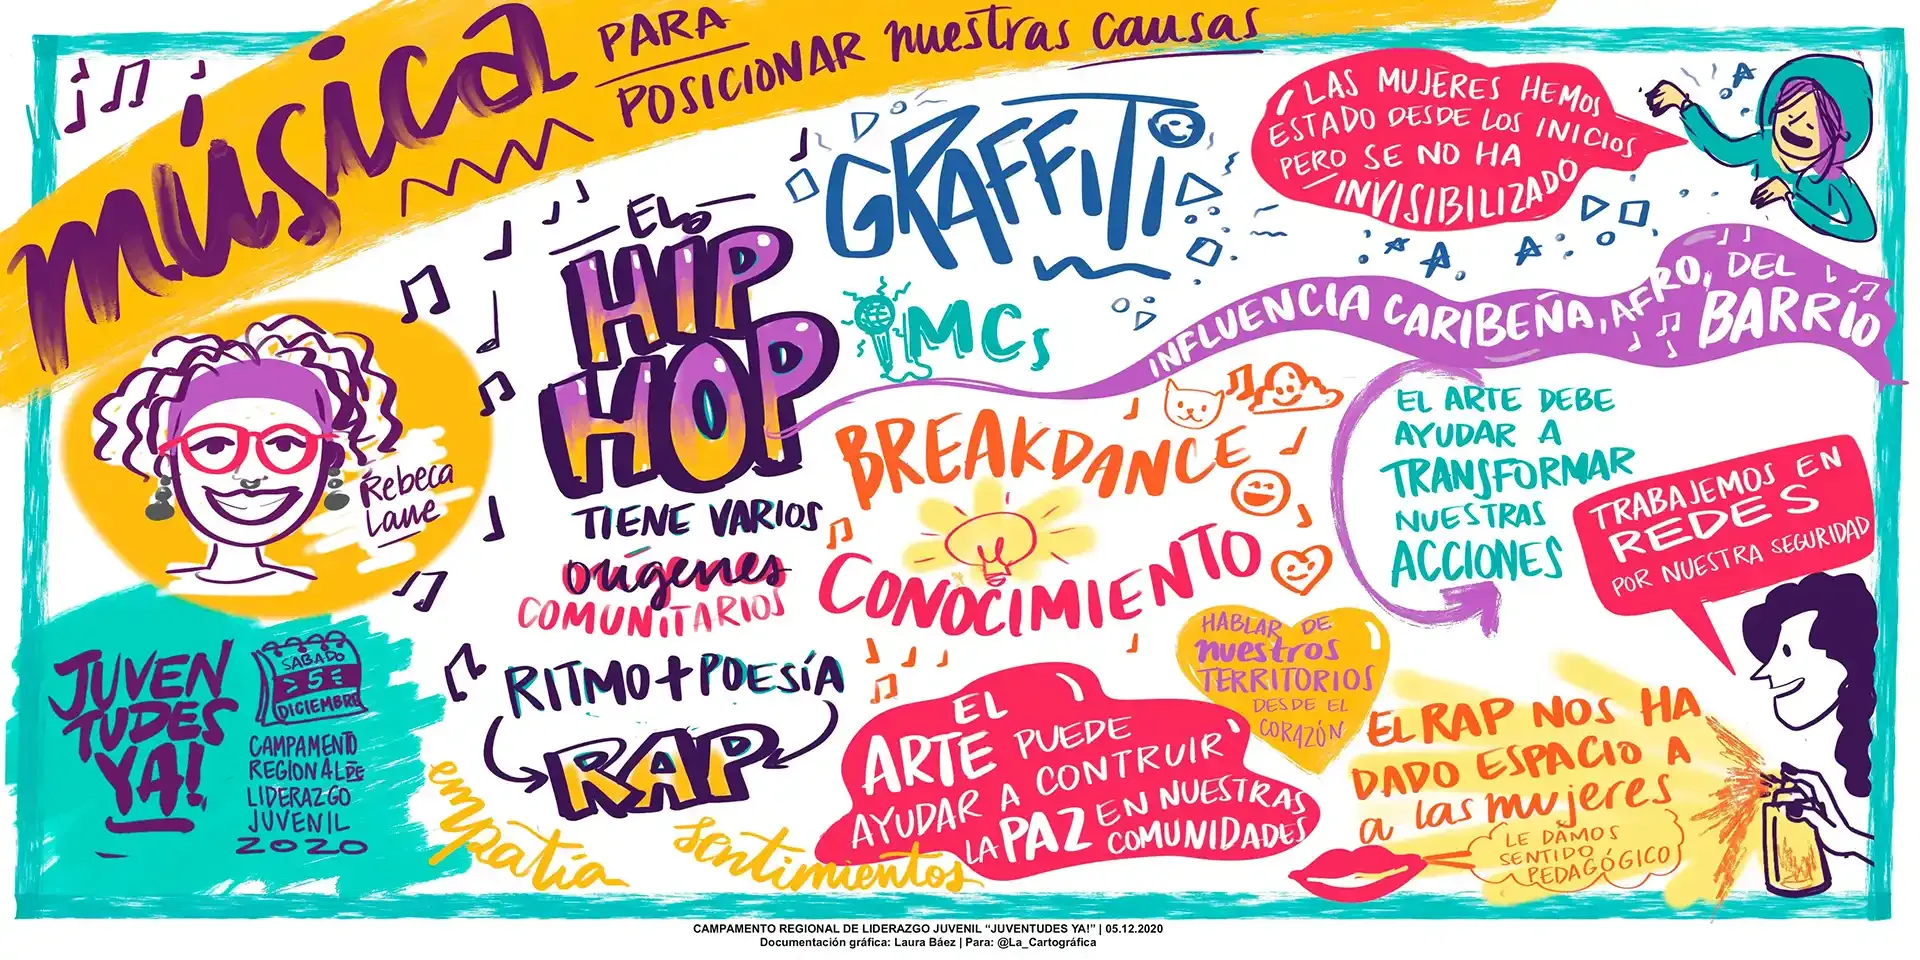 música
PARA
POSICIONAR nuestras causas
Rebeca
Lane
JUVEN
TUDES
YA!
SABADO
5
DICIEMBRE
CAMPAMENTO
REGIONAL DE
LIDERAZGO
JUVENIL
2020
EL
HIP
HOP
TIENE VARIOS
orígenes
COMUNITARIOS
RITMO + POESÍA
RAP
empatía
sentimientos
GRAFFITI
MCs
BREAKDANCE
CONOCIMIENTO
INFLUENCIA CARIBEÑA, AFRO, DEL
BARRIO
LAS MUJERES HEMOS
ESTADO DESDE LOS INICIOS
PERO SE NO HA
INVISIBILIZADO
EL ARTE DEBE
AYUDAR A
TRANSFORMAR
NUESTRAS
ACCIONES
TRABAJEMOS EN
REDES
POR NUESTRA SEGURIDAD
HABLAR DE
nuestros
TERRITORIOS
DESDE EL
CORAZÓN
EL
ARTE PUEDE
AYUDAR A CONTRUIR
LA PAZ EN NUESTRAS
COMUNIDADES
EL RAP NOS HA
DADO ESPACIO A
a las mujeres
LE DAMOS
SENTIDO
PEDAGÓGICO
CAMPAMENTO REGIONAL DE LIDERAZGO JUVENIL “JUVENTUDES YA!” | 05.12.2020
Documentación gráfica: Laura Báez | Para: @La_Cartográfica